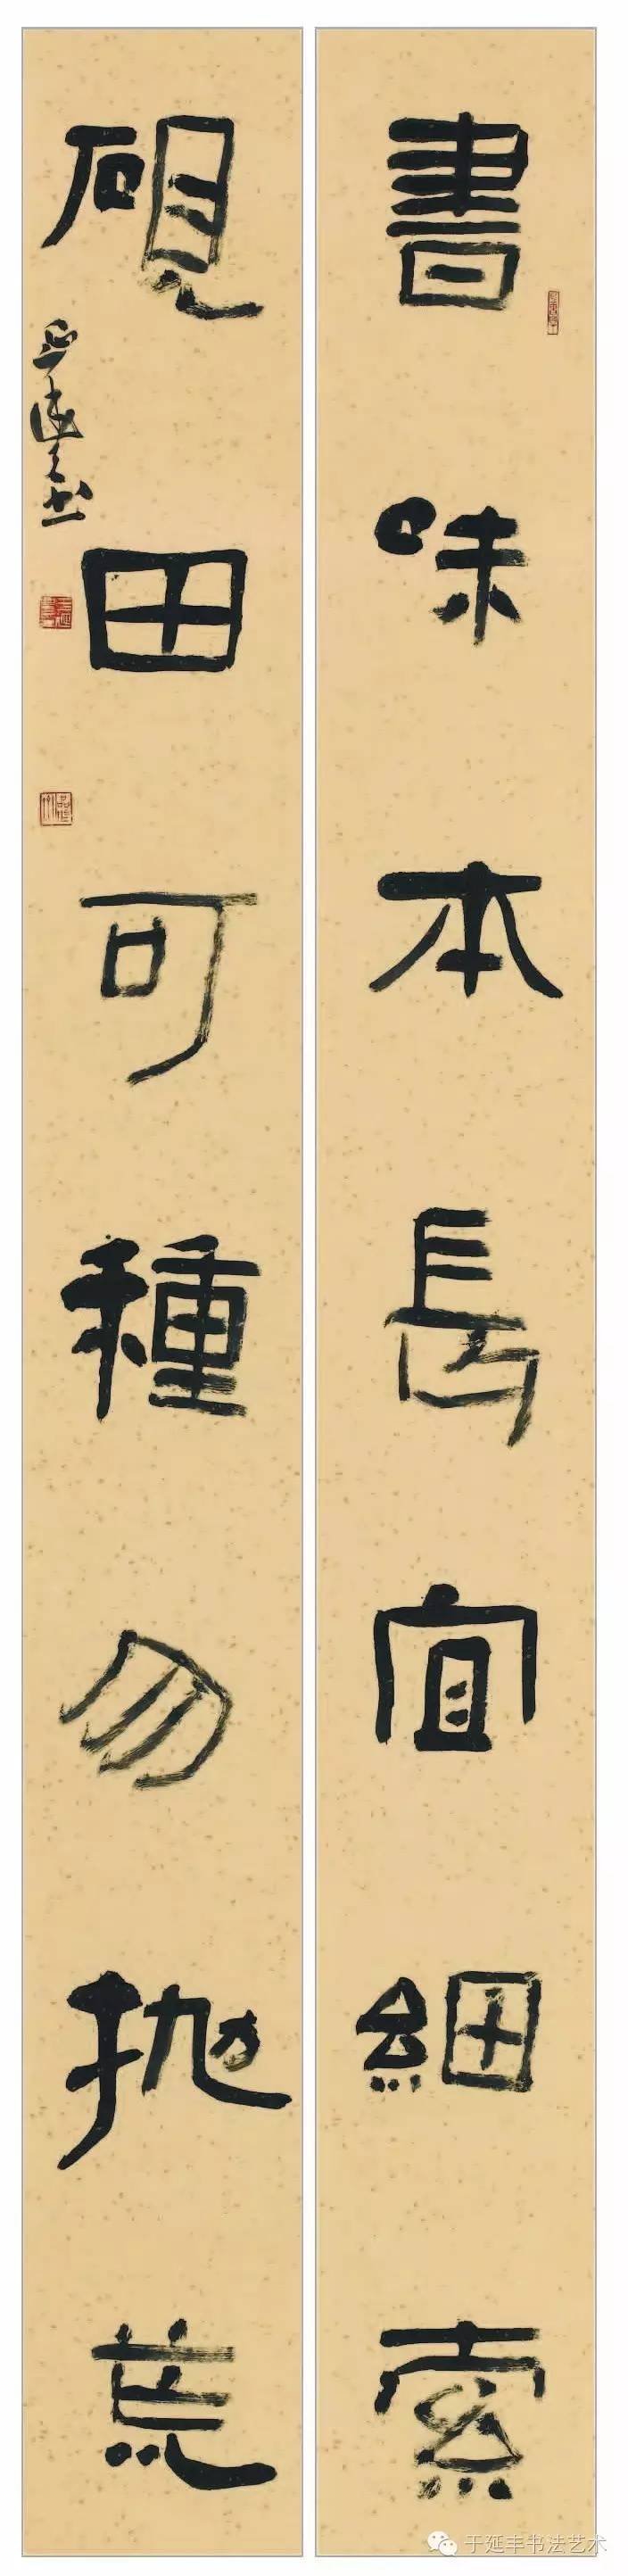 書味本長宜細索
硯田可種勿抛荒
于延丰书法艺术